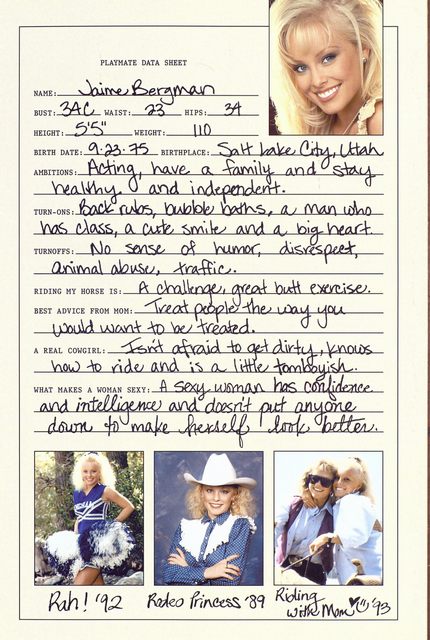 PLAYMATE DATA SHEET
NAME: Jaime Bergman
BUST: 34C WAIST: 23 HIPS: 34
HEIGHT: 5'5" WEIGHT: 110
BIRTH DATE: 9-23-75 BIRTHPLACE: Salt Lake City, Utah
AMBITIONS: Acting, have a family and stay
healthy and independent.
TURN-ONS: Back rubs, bubble baths, a man who
has class, a cute smile and a big heart.
TURNOFFS: No sense of humor, disrespect,
animal abuse, traffic.
RIDING MY HORSE IS: A challenge, great butt exercise.
BEST ADVICE FROM MOM: Treat people the way you
would want to be treated.
A REAL COWGIRL: Isn't afraid to get dirty, knows
how to ride and is a little tomboyish.
WHAT MAKES A WOMAN SEXY: A sexy woman has confidence
and intelligence and doesn't put anyone
down to make herself look better.
Rah! '92
Rodeo Princess '89
Riding
with Mom '93